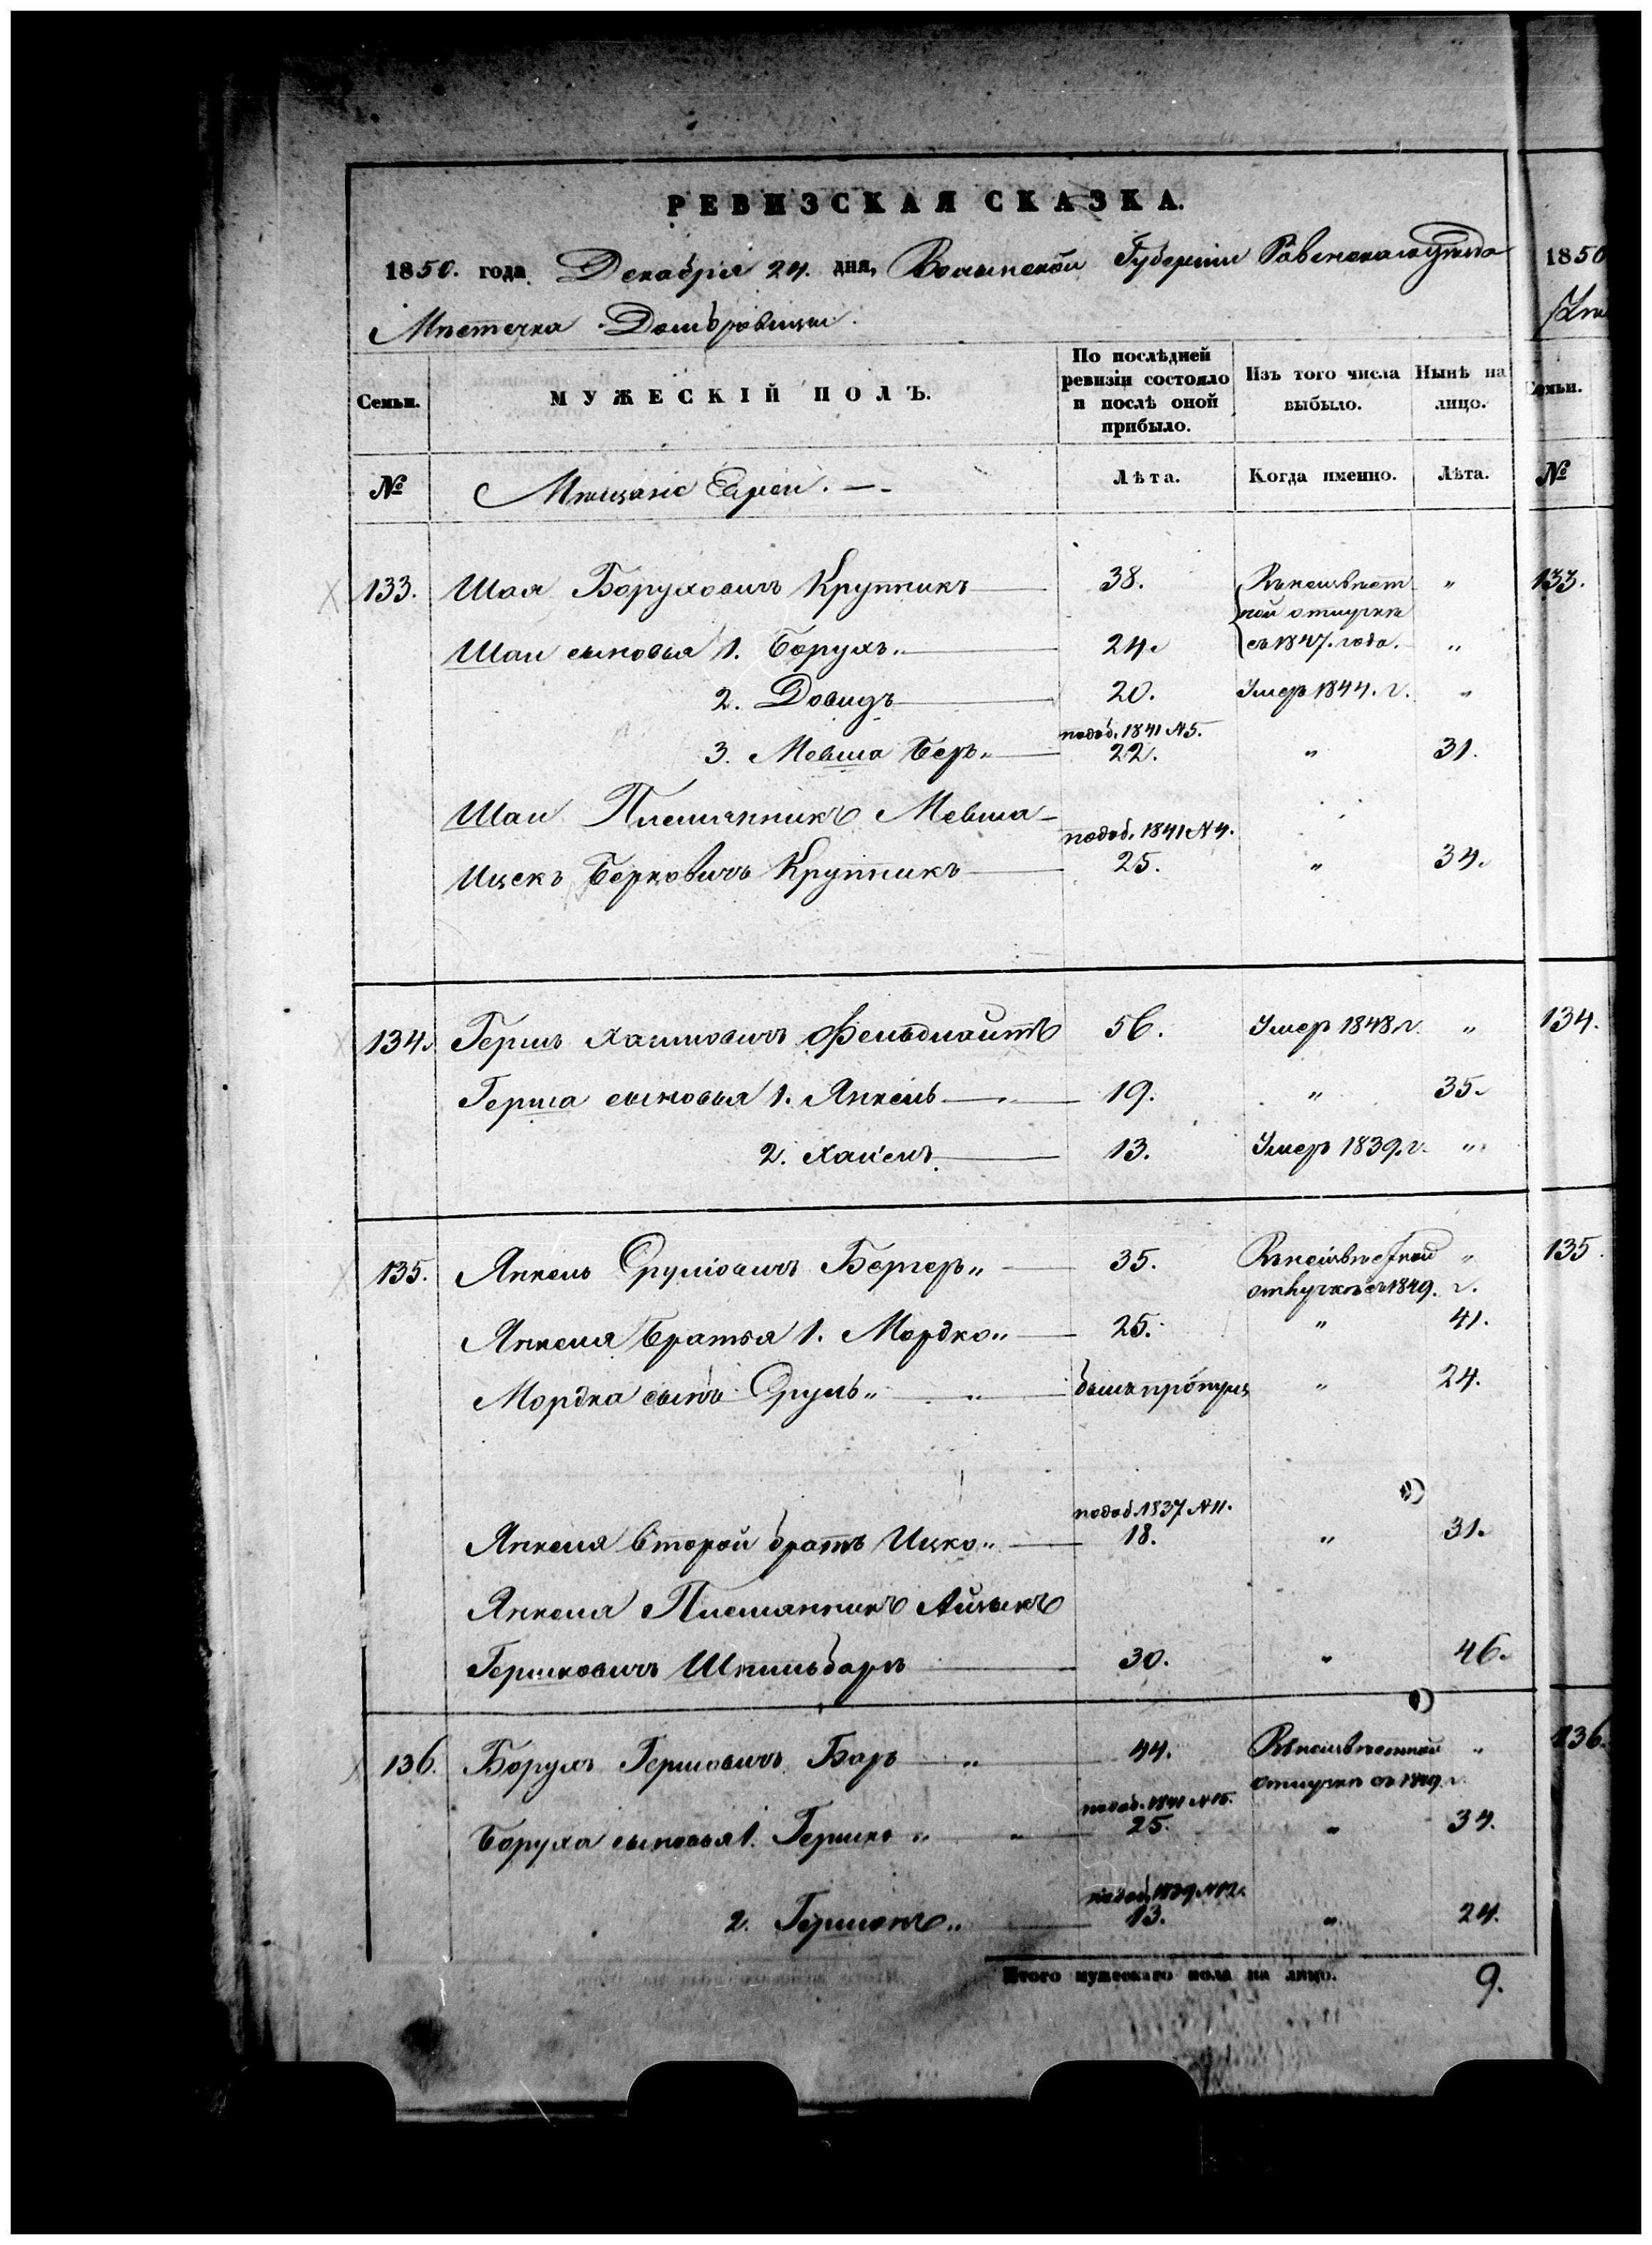 РЕВИЗСКАЯ СКАЗКА.
1850. года Декабря 24. дня, Волынской Губернии Ровенскаго Уезда
Местечка Домбровицы.
Семьи.
МУЖЕСКІЙ ПОЛЪ.
По послѣдней ревизіи состояло и послѣ оной прибыло.
Изъ того числа выбыло.
Нынѣ на лицо.
№ Мещане Евреи. Лѣта. Когда именно. Лѣта.
133. Шая Боруховичъ Крупникъ 38. Въ неизвест "
ной отлучке
Шаи сыновья 1. Борухъ " 24. съ 1847. года. "
2. Довидъ 20. Умеръ 1844. г. "
подоб. 1841 №5.
3. Мевша Беръ " 22. " 31.
Шаи Племянникъ Мевша
подоб. 1841 №4.
Ицекъ Берковичъ Крупникъ 25. " 34.
134. Гершъ Хаимовичъ 56. Умеръ 1848. г. "
Герша сыновья 1. Янкель 19. " 35.
2. Хаимъ 13. Умеръ 1839. г. "
135. Янкель Сруліовичъ Бергеръ " 35. Въ неизвестной "
отлучке съ 1849. г.
Янкеля братья 1. Мордко " 25. " 41.
Мордка сынъ Сруль " " былъ пропущ " 24.
подоб. 1837 №11.
Янкеля второй братъ Ицко " 18. " 31.
Янкеля Племянникъ Айзыкъ
Гершковичъ Шпильбаръ 30. " 46.
136. Борухъ Гершовичъ Баръ " 44. Въ неизвестной "
отлучке съ 1849. г.
подоб. 1841 №15.
Боруха сыновья 1. Гершко " " 25. " 34.
подоб. 1839 №12.
2. Гершонъ " 13. " 24.
Итого мужескаго пола на лицо. 9.
1850
Семьи.
№
133.
134.
135.
136.